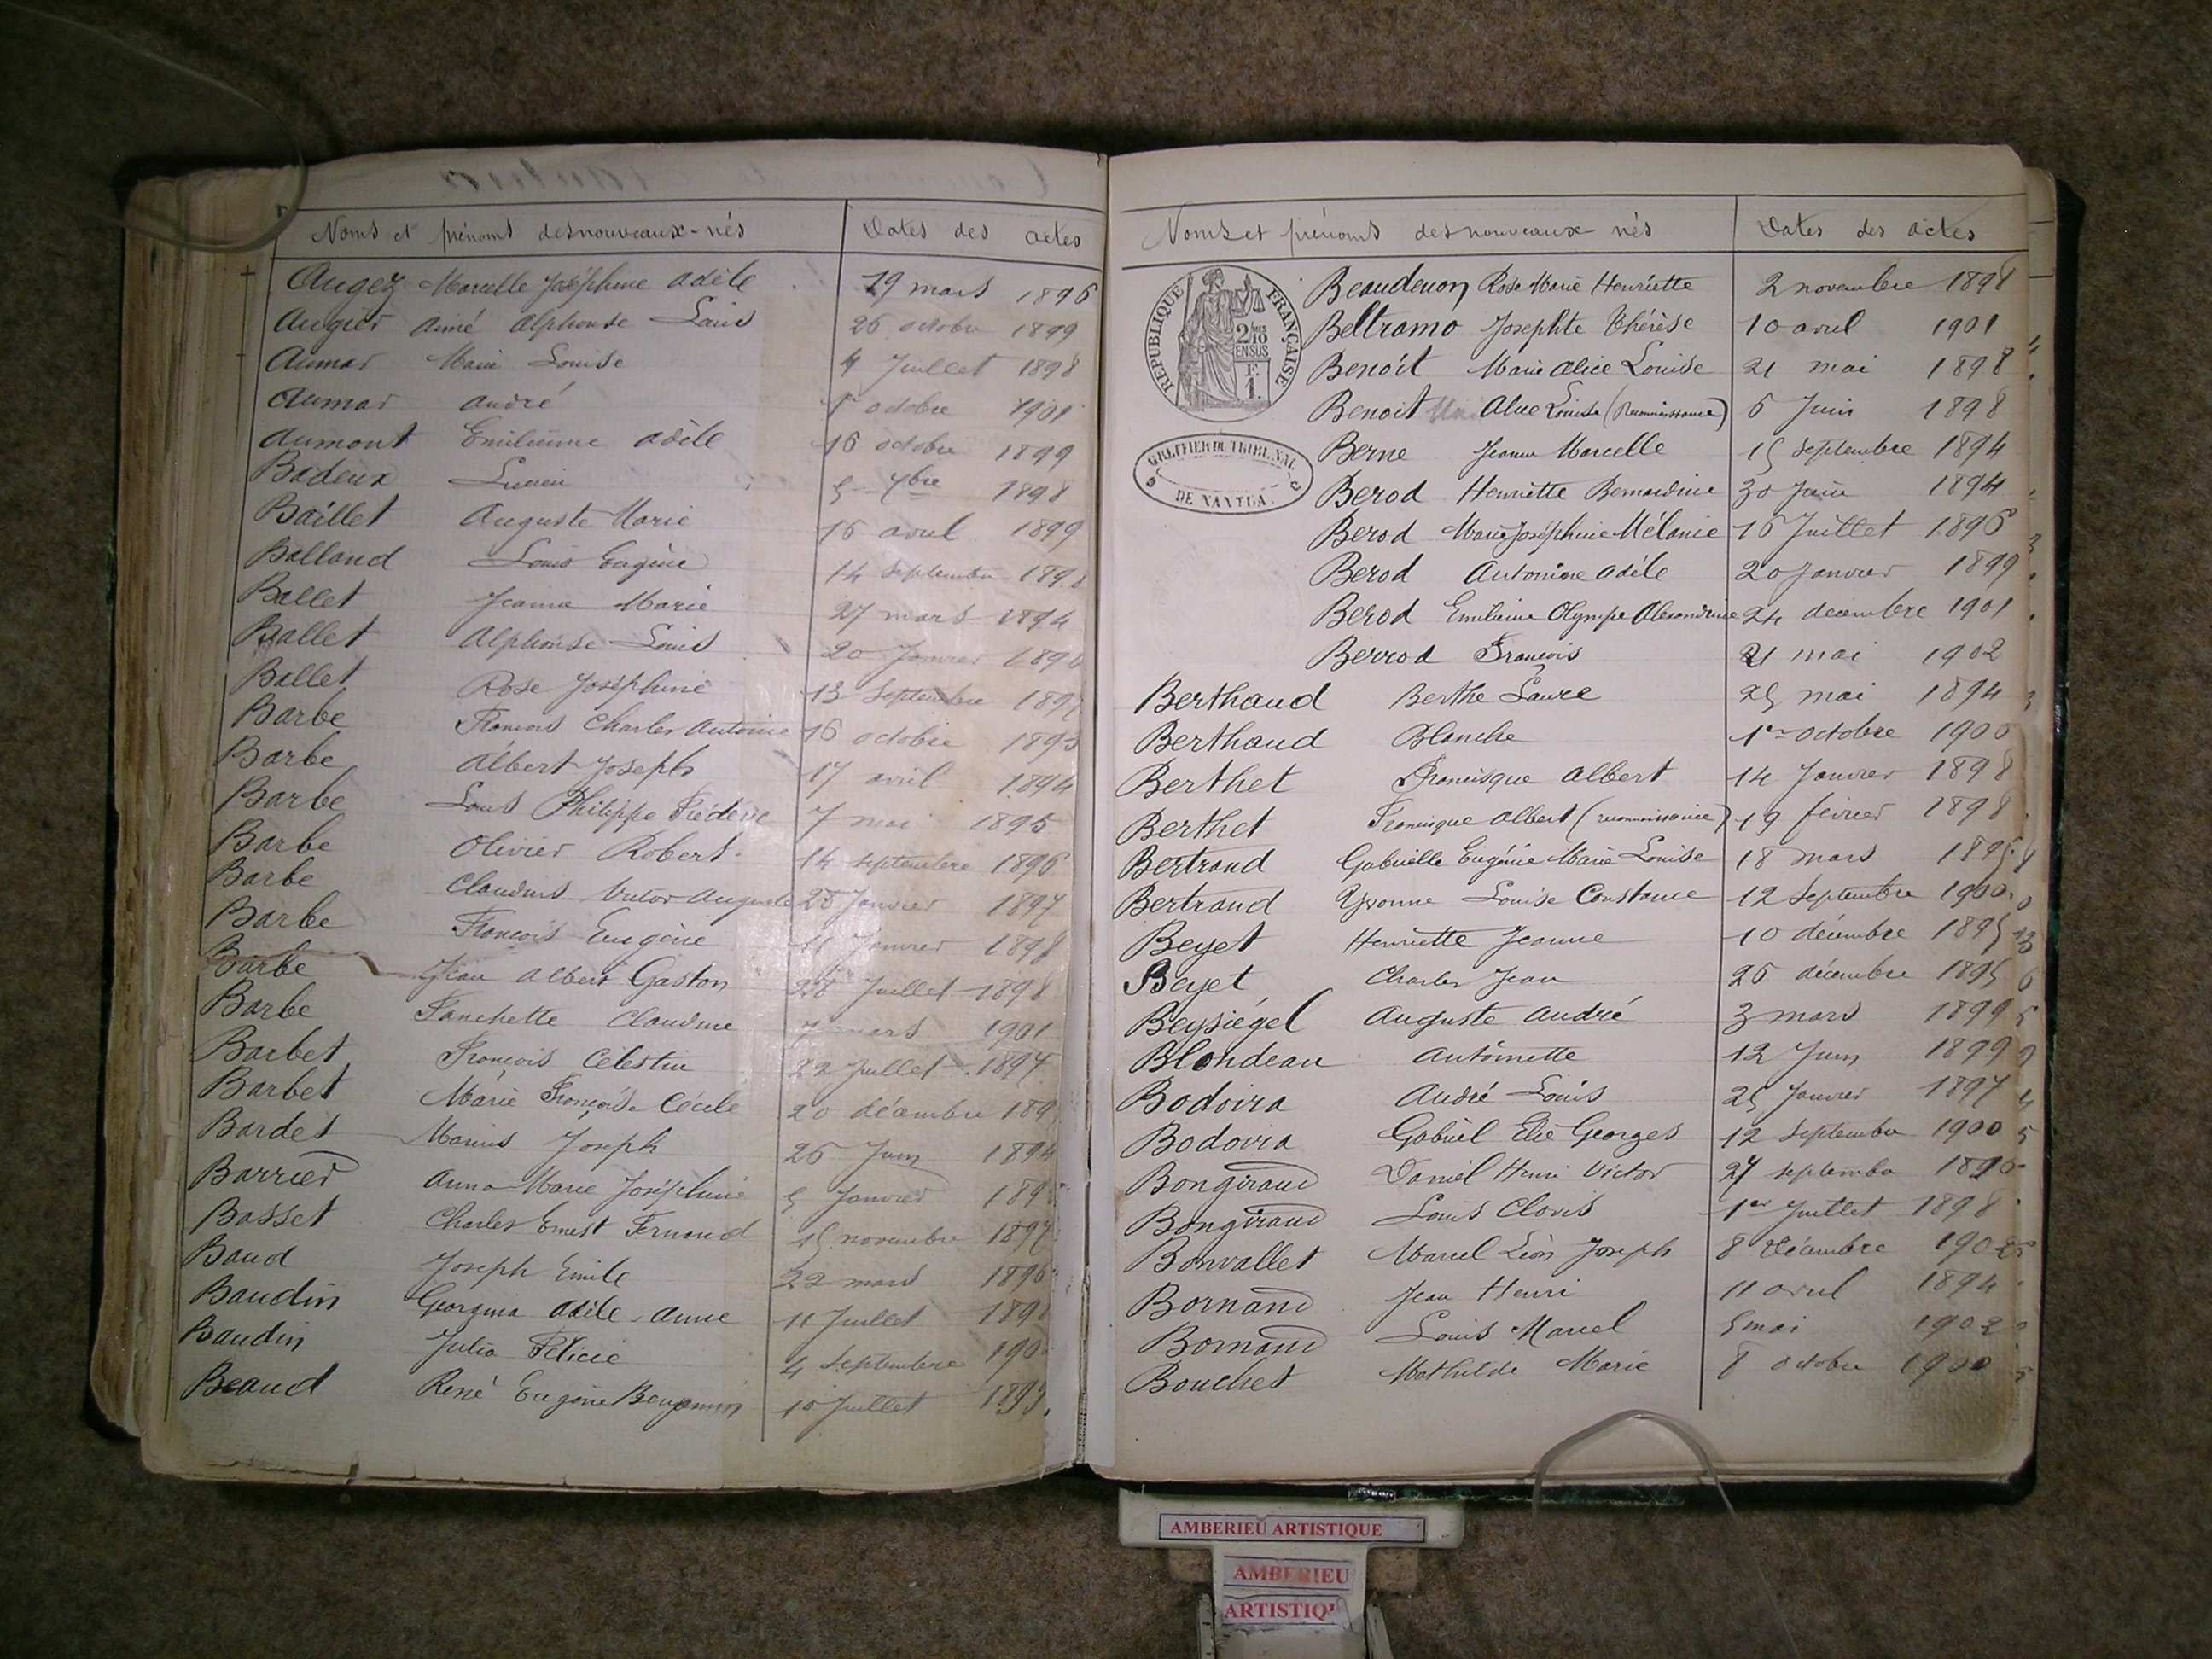 Noms et prénoms des nouveaux-nés Dates des actes
Augez Marcelle Joséphine Adèle 29 mars 1896
Augier Aimé Alphonse Louis 26 octobre 1899
Aumar Marie Louise 4 Juillet 1898
Aumar André 1er octobre 1901
Aumont Emilienne Adèle 16 octobre 1899
Badeux Lucien 5 7bre 1898
Baillet Auguste Marie 16 avril 1899
Balland Louis Eugène 14 septembre 189
Ballet Jeanne Marie 27 mars 1894
Ballet Alphonse Louis 20 Janvier 189
Ballet Rose Joséphine 13 Septembre 189
Barbe François Charles Antoine 16 octobre 1893
Barbe Albert Joseph 17 avril 1894
Barbe Louis Philippe Frédéric 7 mai 1895
Barbe Olivier Robert 14 septembre 1896
Barbe Claudius Victor Auguste 28 Janvier 1897
Barbe François Eugène 11 Janvier 1898
Barbe Jean Albert Gaston 28 Juillet 1898
Barbe Fanchette Claudine 7 mars 1901
Barbet François Célestin 22 Juillet 1897
Barbet Marie Françoise Cécile 20 décembre 189
Bardet Marius Joseph 26 Juin 1894
Barrier Anna Marie Joséphine 5 Janvier 189
Basset Charles Ernest Fernand 15 novembre 1897
Baud Joseph Emile 22 mars 1896
Baudin Georgina Adèle Anne 11 Juillet 189
Baudin Julia Félicie 4 Septembre 190
Beaud René Eugène Benjamin 10 Juillet 1893
Noms et prénoms des nouveaux nés Dates des actes
REPUBLIQUE FRANÇAISE
2/10 EN SUS
F. 1.
GREFFIER DU TRIBUNAL DE NANTUA
Beaudenon Rose Marie Henriette 2 novembre 1898
Beltramo Josephte Thérèse 10 avril 1901
Benoît Marie Alice Louise 21 mai 1898
Benoit Alice Louise (Reconnaissance) 6 Juin 1898
Berne Jeanne Marcelle 15 Septembre 1894
Berod Henriette Bernardine 30 Juin 1894
Berod Marie Joséphine Mélanie 16 Juillet 1896
Berod Antonine Adèle 20 Janvier 1899
Berod Emilienne Olympe Alexandrine 24 décembre 1901
Berrod François 21 mai 1902
Berthaud Berthe Laure 25 mai 1894
Berthaud Blanche 1er octobre 1900
Berthet Francisque Albert 14 Janvier 1898
Berthet Francisque Albert (reconnaissance) 19 février 1898
Bertrand Gabrielle Eugénie Marie Louise 18 mars 1895
Bertrand Yvonne Louise Constance 12 Septembre 1900
Beyet Henriette Jeanne 10 décembre 1895
Beyet Charles Jean 26 décembre 1895
Beysiégel Auguste André 3 mars 1899
Blondeau Antoinette 12 Juin 1899
Bodoira André Louis 25 Janvier 1897
Bodoira Gabriel Elie Georges 12 Septembre 1900
Bongiraud Daniel Henri Victor 27 septembre 1896
Bongiraud Louis Clovis 1er Juillet 1898
Bonvallet Marcel Léon Joseph 8 décembre 1902
Bornand Jean Henri 11 avril 1894
Bornand Louis Marcel 5 mai 1902
Bouchet Mathilde Marie 8 octobre 1900
AMBERIEU ARTISTIQUE
AMBERIEU
ARTISTIQU